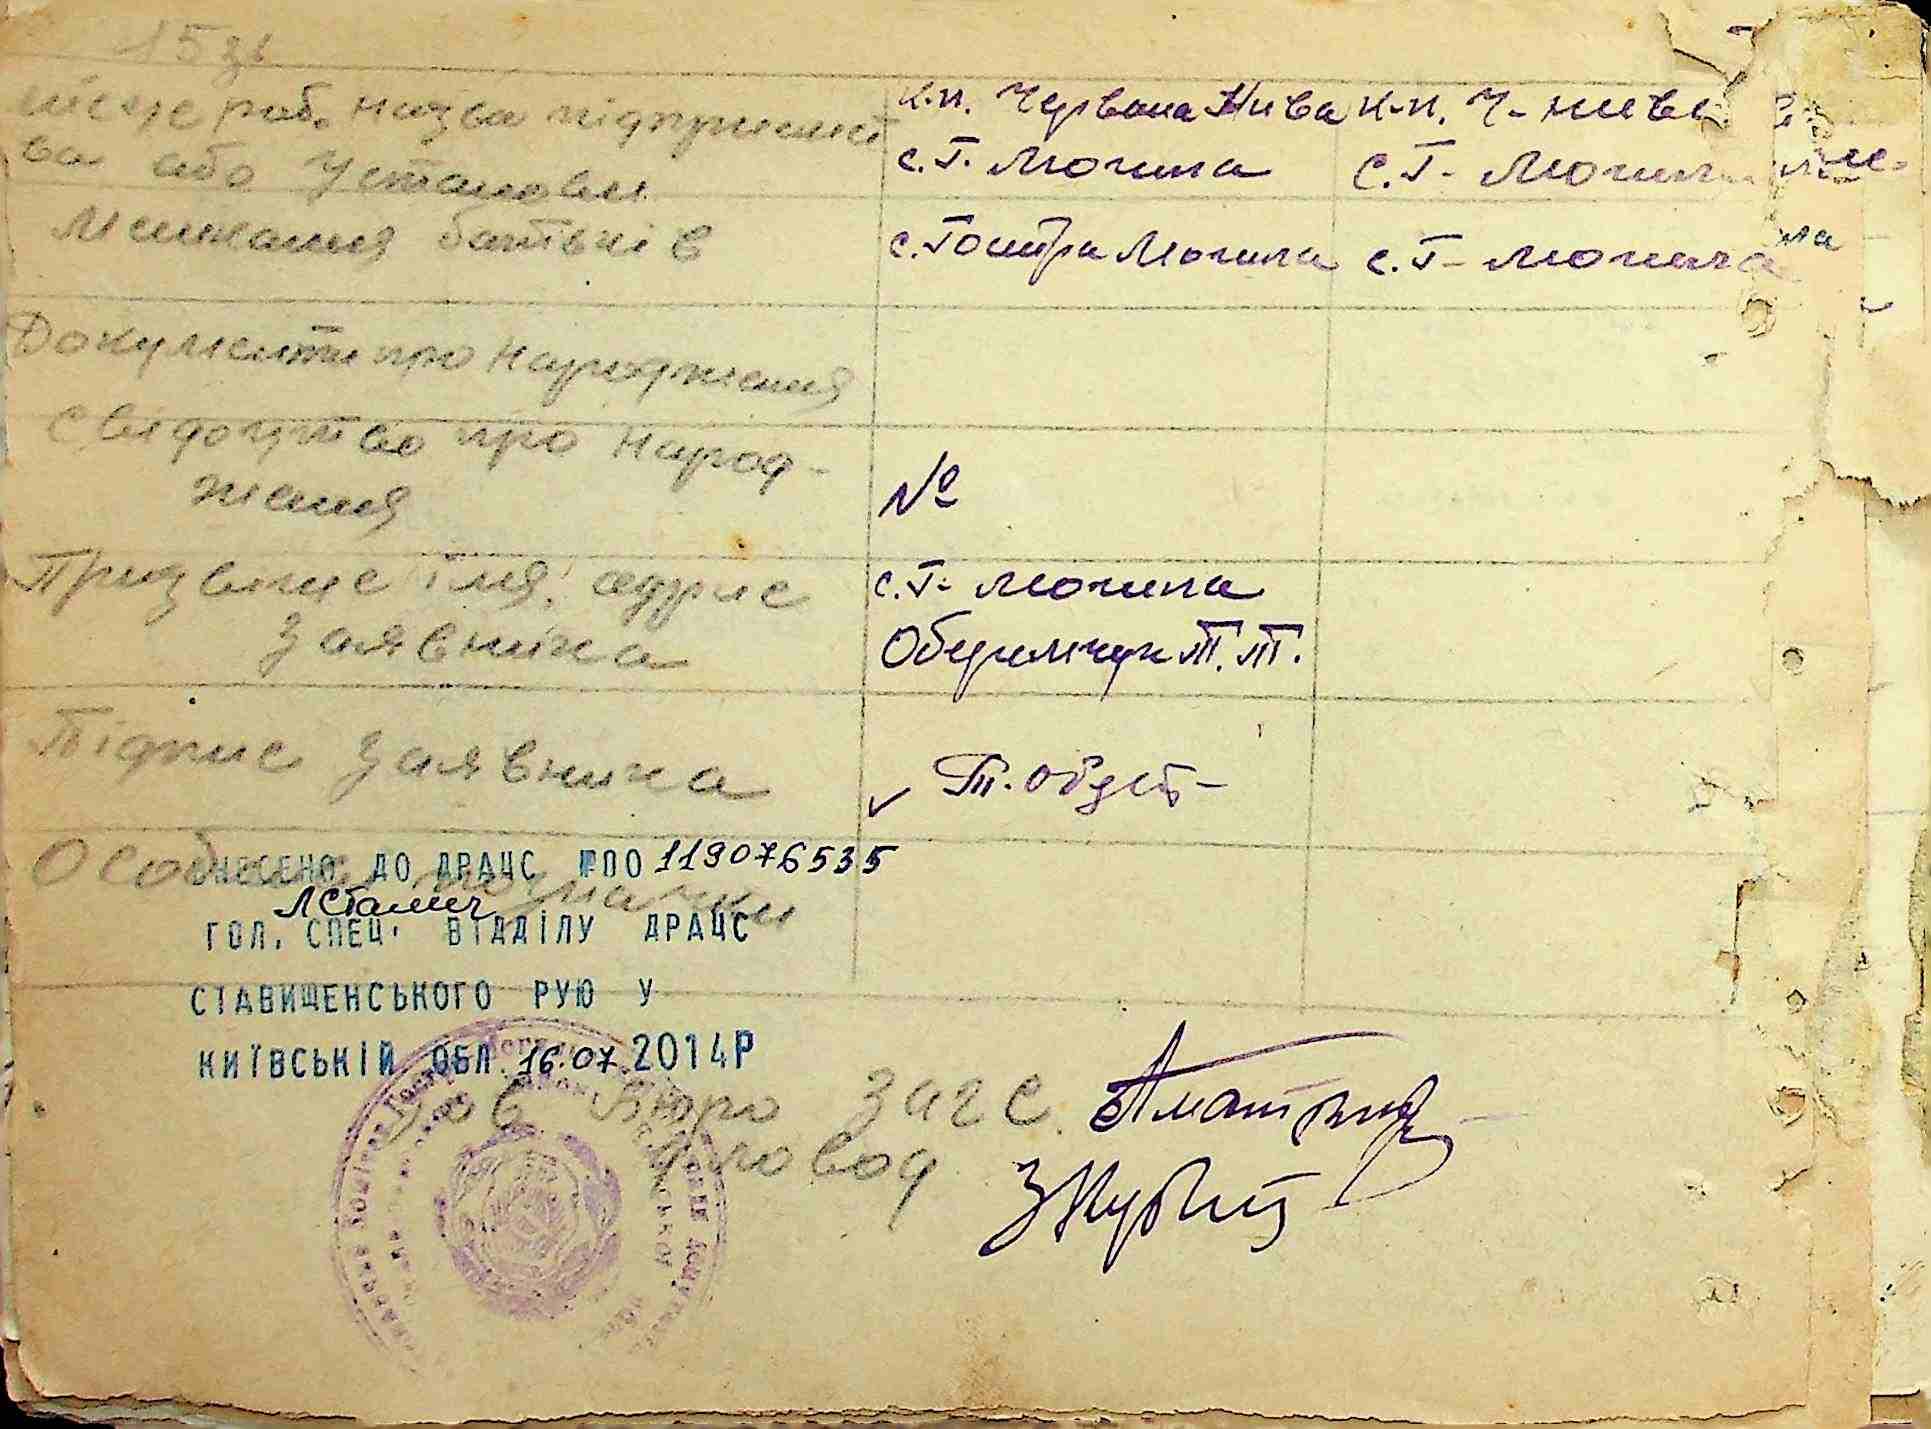 15 зв
місце роб. назва підприємст к-п. Червона Нива к-п. Ч-Нива
ва або установи с. Г. Могила с. Г- Могила
мешкання батьків с. Гостра Могила с. Г- Могила
Документи про народження
Свідоцтво про народ-
ження №
Призвище імя, адрис с. Г- Могила
Заявника Оберемчук Т. Т.
Підпис Заявника Т. Обер-
Особливі позначки
ВНЕСЕНО ДО ДРАЦС №ПО 119076535
ГОЛ. СПЕЦ. ВІДДІЛУ ДРАЦС
СТАВИЩЕНСЬКОГО РУЮ У
КИЇВСЬКІЙ ОБЛ. 16.07 2014Р
Зав Бюро Загс
Діловод